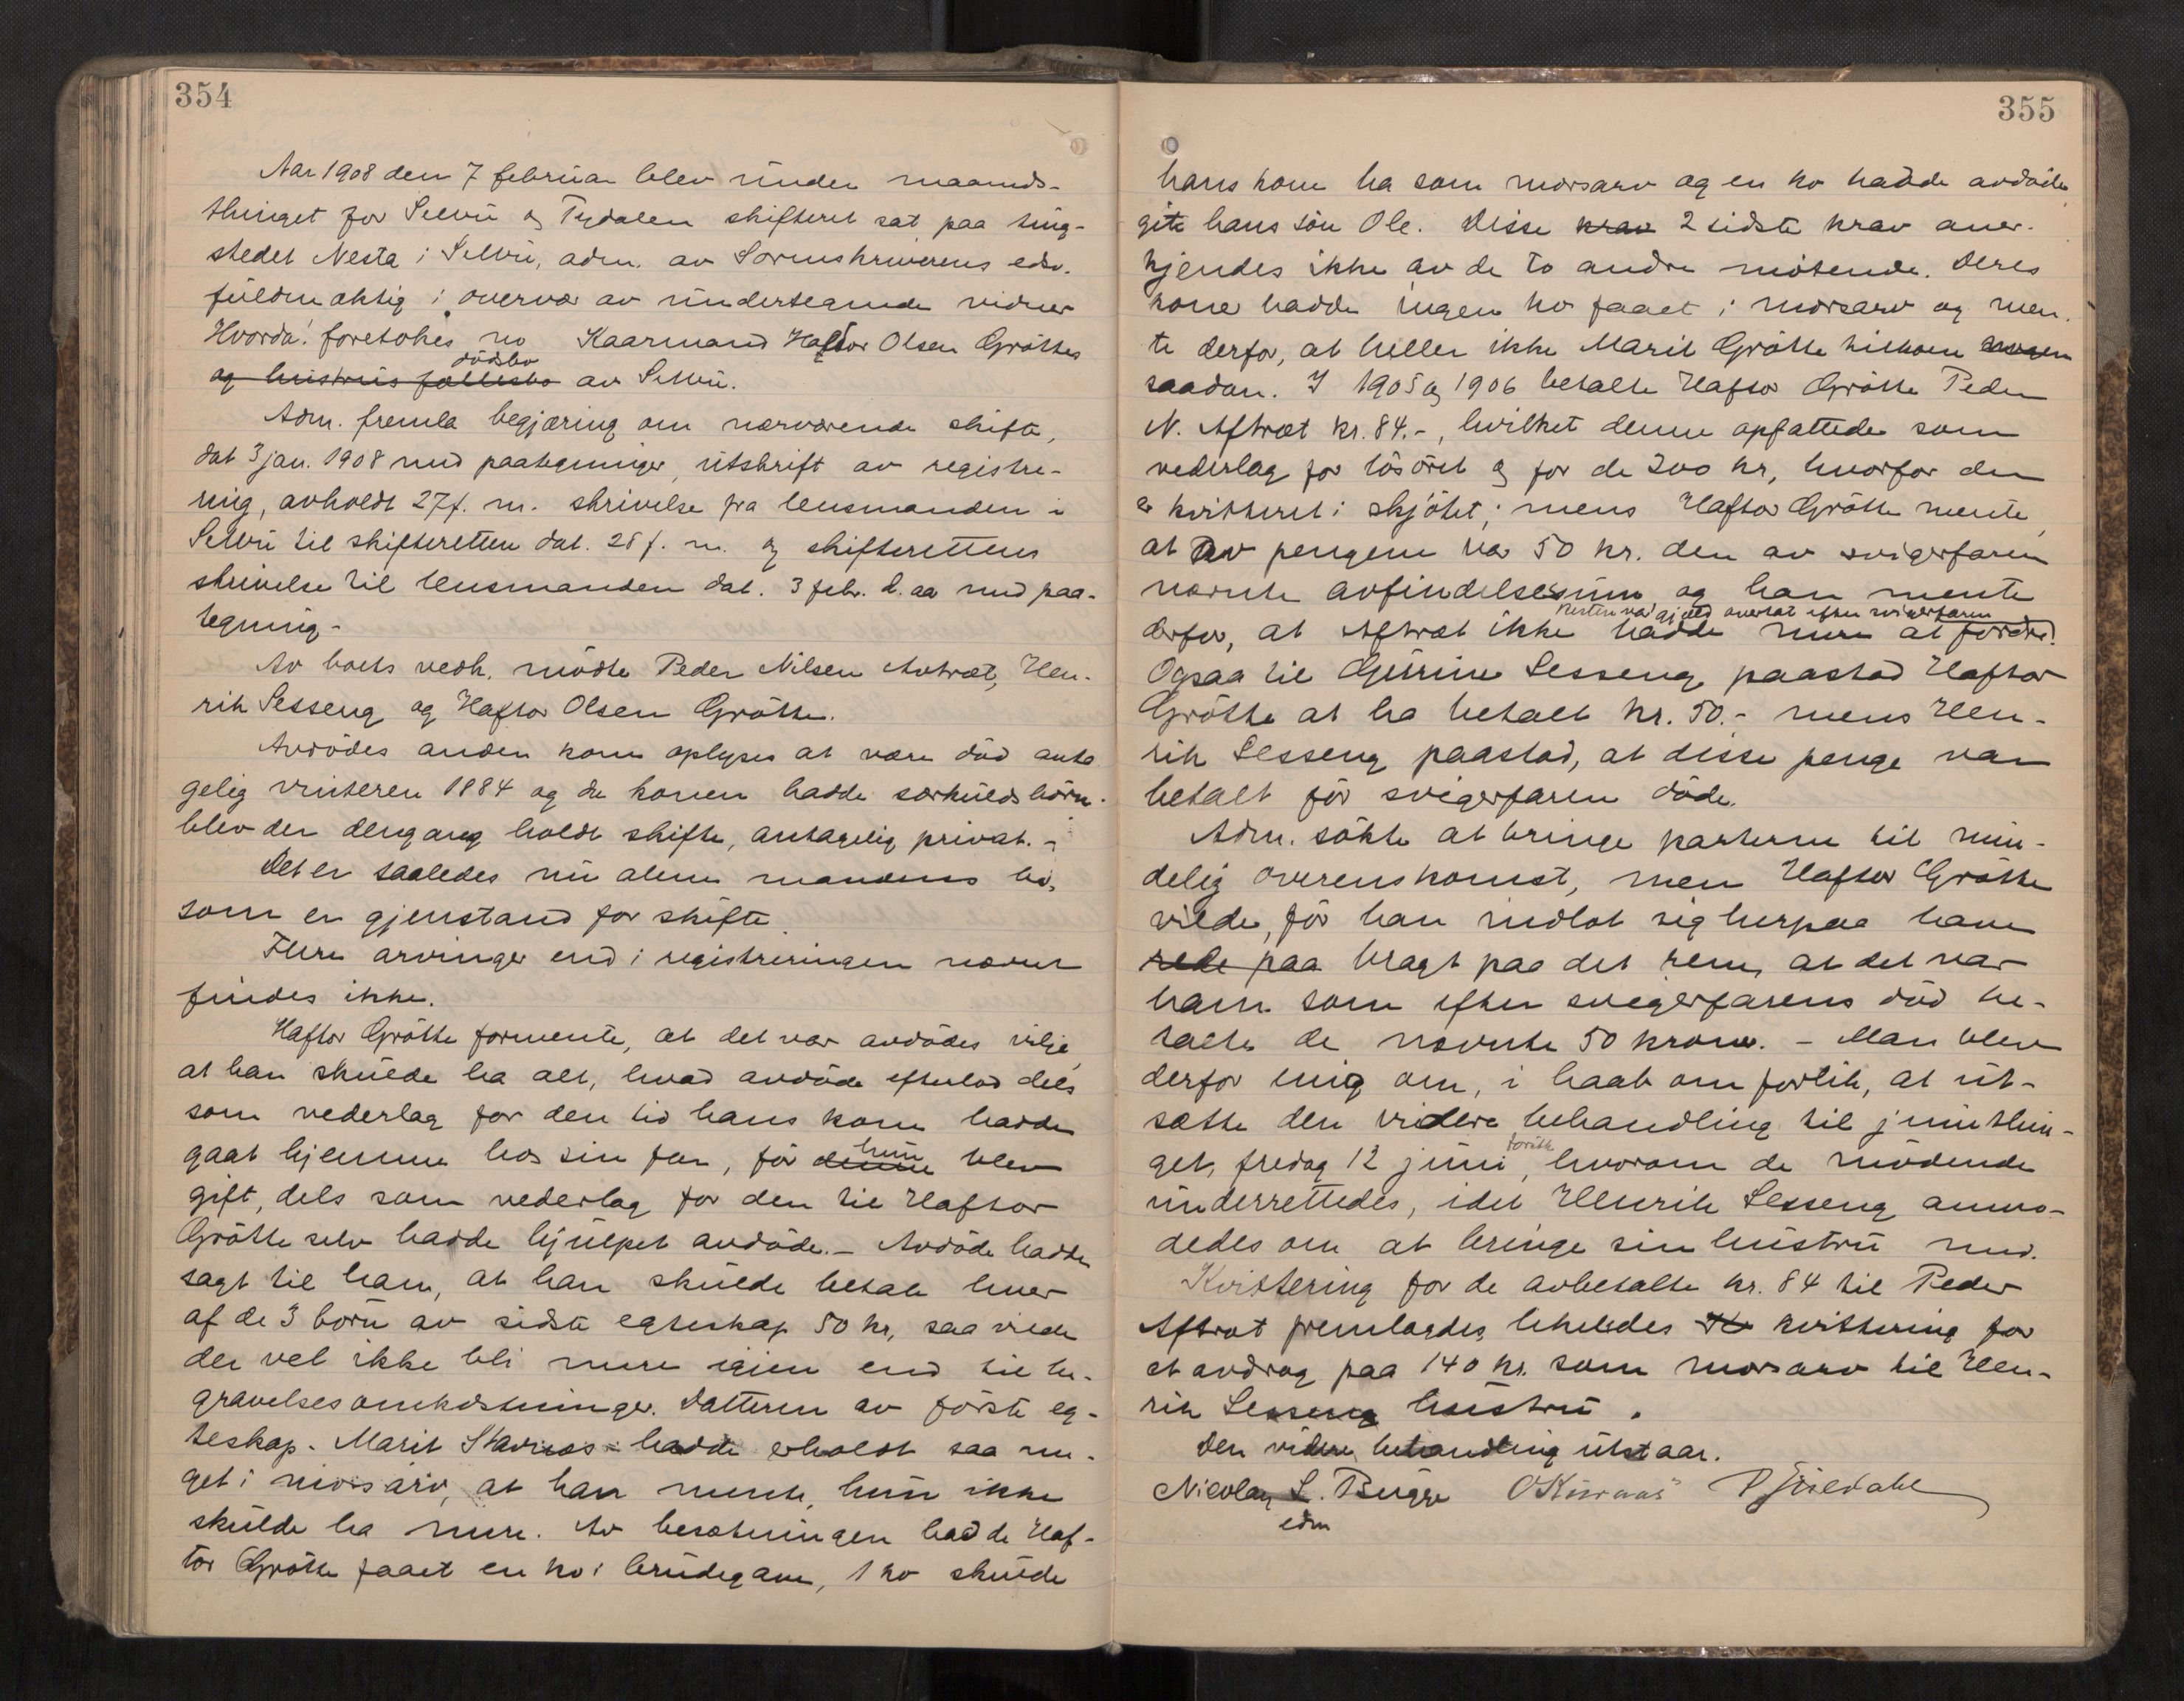 354
Aar 1908 den 7 februar blev under maaneds-
thinget for Selbu og Tydalen skifteret sat paa ting-
stedet Nesta i Selbu, adm. av Sorenskriverens edsv.
fuldmæktig i overvær av undertegnede vidner
Hvorda! foretokes no Kaarmand Haftor Olsen Grøttes
dødsbo
og hustrus fællesbo av Selbu.
Adm. fremla begjæring om nærværende skifte,
dat 3 jan. 1908 med paategninger, utskrift av registre-
ring, avholdt 27 f. m. skrivelse fra lensmanden i
Selbu til skifteretten dat. 28 f. m. og skifterettens
skrivelse til lensmanden dat. 3 febr. d. aa med paa-
tegning-
Av boets vedk. mødte Peder Nilsen Avtræt, Hen-
rik Sesseng og Haftor Olsen Grøtte.
Avdødes anden kone oplyses at være død anta
gelig vinteren 1884 og da konen hadde særkuldsbørn
blev der dengang holdt skifte, antagelig privat.-
Det er saaledes nu alene mandens bo,
som er gjenstand for skifte.
Flere arvinger end i registreringen nævnt
findes ikke.
Haftor Grøtte formente, at det var avdødes vilje
at han skulde ha alt, hvad avdøde efterlod dels
som vederlag for den tid hans kone hadde
gaat hjemme hos sin far, før denne hun blev
gift, dels som vederlag for den tid Haftor
Grøtte selv hadde hjulpet avdøde.- Avdøde hadde
sagt til ham, at han skulde betale hver
af de 3 børn av sidste egteskap 50 kr, saa vilde
der vel ikke bli mere igjen end til be-
gravelsesomkostninger. Datteren av første eg-
teskap - Marit Stavnes - hadde erholdt saa me-
get i morsarv, at han mente, hun ikke
skulde ha mere. Av besætningen hadde Haf-
tor Grøtte faaet en ko i brudegave, 1 ko skulde
355
hans kone ha som morsarv og en ko hadde avdøde
gitt hans søn Ole. Disse krav 2 sidste krav aner-
kjendes ikke av de to andre møtende. Deres
koner hadde ingen ko faaet i morsarv og men
te derfor, at heller ikke Marit Grøtte tilkom
saadan. I 1905 og 1906 betalte Haftor Grøtte Peder
N. Aftræt kr. 84.-, hvilket denne opfattede som
vederlag for løsøret og for de 200 kr, hvorfor der
er kvitteret i skjøtet; mens Haftor Grøtte mente
at av pengene var 50 kr. den av svigerfaren
nævnte avfindelsessum og han mente
Resten var gjæld overtat efter svigerfaren
derfor, at Aftræt ikke hadde mere at fordre.
Ogsaa til Gurine Sesseng paastod Haftor
Grøtte at ha betalt kr. 50.- mens Hen-
rik Sesseng paastod, at disse penge var
betalt før svigerfaren døde.
Adm. søkte at bringe parterne til min-
delig overenskomst, men Haftor Grøtte
vilde, før han indlot sig herpaa have
rede paa bragt paa det rene, at det var
ham som efter svigerfarens død be-
talte de nævnte 50 kroner. - Man blev
derfor enig om, i haab om forlik, at ut-
sætte den videre behandling til junithin-
get, fredag 12 juni, hvorom de mødende
underrettedes, idet Henrik Sesseng anmo-
dedes om at bringe sin hustru med.
Kvittering for de avbetalte kr. 84 til Peder
Aftræt fremlagdes, likeledes kvittering for
et avdrag paa 140 kr. som morsarv til Hen-
rik Sesseng hustru.
Den videre behandling utstaar.
Nicolay S. Bugge O Kuraas
edm